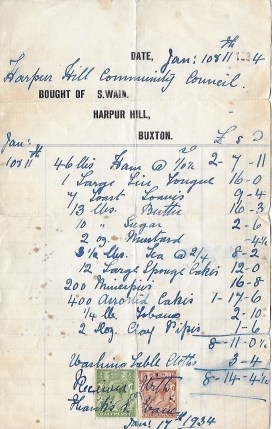 DATE, Jan: 10&11th 1934
Harpur Hill Community Council.
BOUGHT OF S. WAIN,
HARPUR HILL,
BUXTON.
Jan: £ s D
10&11th
46 lbs Ham @ 1/0½ 2-7-11
1 Large Tin Tongue 16-0
7 Loaves 9-4
13 lbs. Butter 16-3
10 " Sugar 2-6
2 oz. Mustard 4½
3½ lbs. Tea @ 2/4 8-2
12 Large Sponge Cakes 12-0
200 16-8
400 Assorted Cakes 1-17-6
¼ lb Tobacco 2-10
2 Doz Clay Pipes 1-6
8-11-0½
Washing Table Cloths 3-4
8-14-4½
Received With
Thanks S. Wain
Jan: 17th 1934